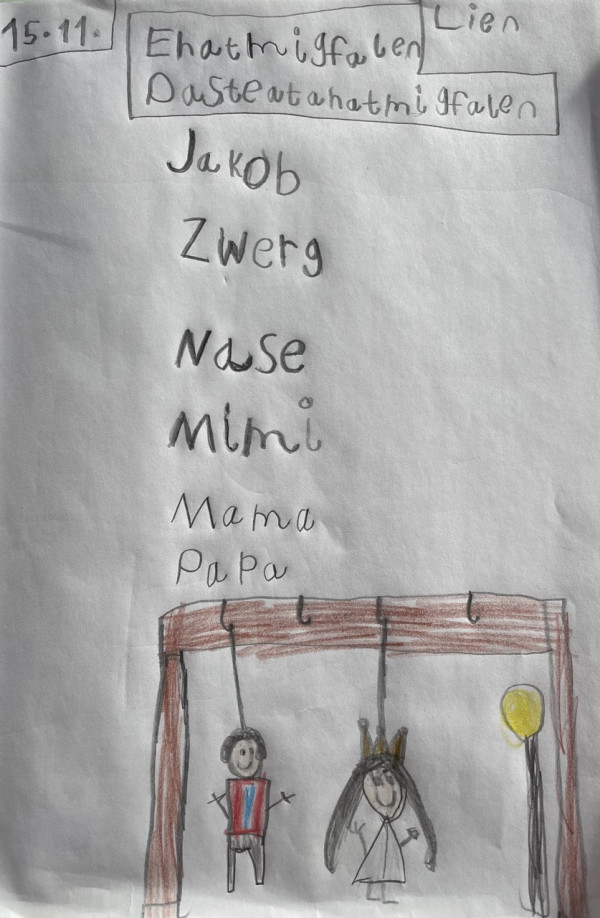 15.11.
Lien
Ehatmigfalen
Dasteatahatmigfalen
Jakob
Zwerg
Nase
Mimi
Mama
Papa